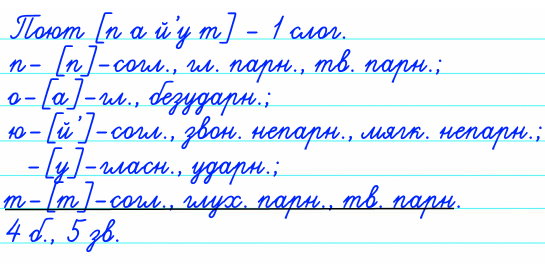 Поют [п а й'у т] - 1 слог.
п - [п] - согл., гл. парн., тв. парн.;
о - [а] - гл., безударн.;
ю - [й'] - согл., звон. непарн., мягк. непарн.;
- [у] - гласн., ударн.;
т - [т] - согл., глух. парн., тв. парн.
4 б., 5 зв.